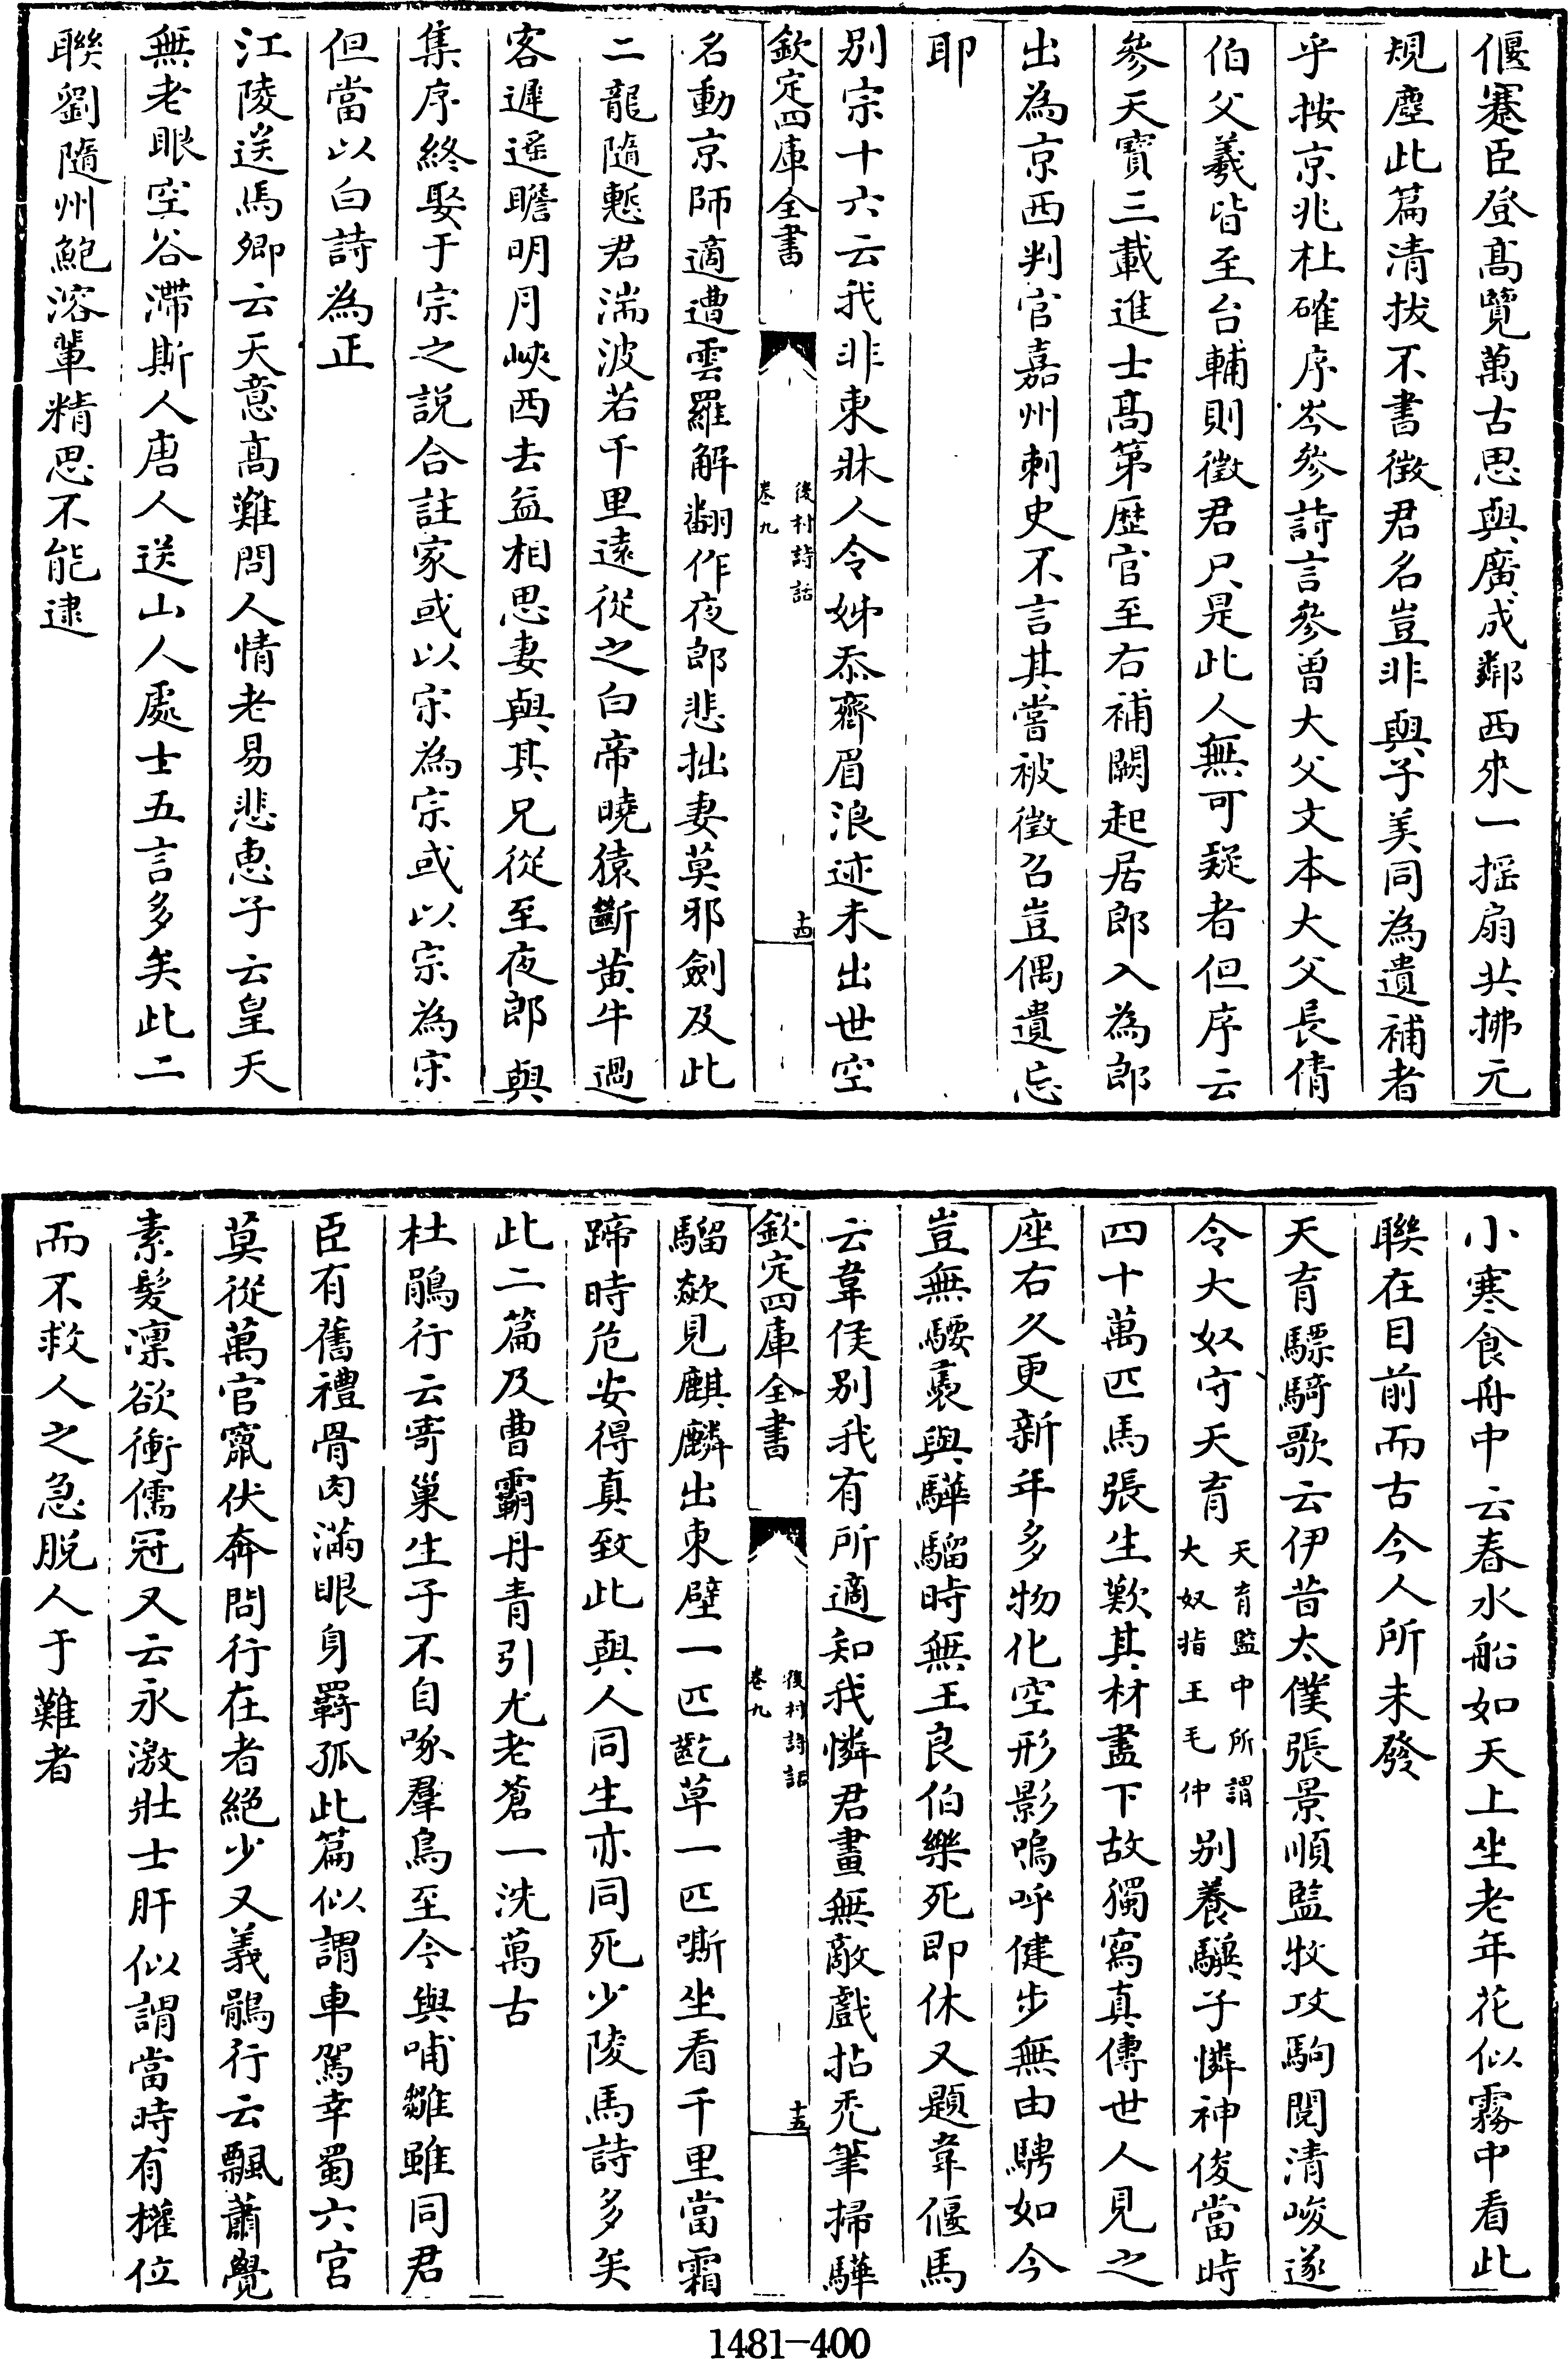 偃蹇臣登髙覽萬古思與廣成鄰西來一摇扇共拂元
規塵此篇清拔不書徴君名豈非與子美同為遺補者
乎按京兆杜確序岑參詩言參曽大父文本大父長倩
伯父羲皆至台輔則徴君只是此人無可疑者但序云
參天寳三載進士髙第歴官至右補闕起居郎入為郎
出為京西判官嘉州刺史不言其嘗被徴召豈偶遺忘
耶
别宗十六云我非東牀人令姊忝齊眉浪迹未出世空
欽定四庫全書
後村詩話
卷九
十四
名動京師適遭雲羅解翻作夜郎悲拙妻莫邪劍及此
二龍隨慙君湍波若千里遠從之白帝曉猿斷黄牛過
客遲遥瞻明月峽西去益相思妻與其兄從至夜郎與
集序終娶于宗之説合註家或以宋為宗或以宗為宋
但當以白詩為正
江陵送馬卿云天意髙難問人情老易悲惠子云皇天
無老眼空谷滯斯人唐人送山人處士五言多矣此二
聨劉隨州鮑溶輩精思不能逮
小寒食舟中云春水船如天上坐老年花似霧中看此
聨在目前而古今人所未發
天育驃騎歌云伊昔太僕張景順監牧攻駒閲清峻遂
令大奴守天育天育監中所謂大奴指王毛仲别養驥子憐神俊當時
四十萬匹馬張生歎其材盡下故獨寫真傳世人見之
座右久更新年多物化空形影嗚呼健步無由騁如今
豈無騕褭與驊騮時無王良伯樂死即休又題韋偃馬
云韋侯别我有所適知我憐君畫無敵戲拈禿筆掃驊
欽定四庫全書
後村詩話
卷九
十五
騮歘見麒麟出東壁一匹齕草一匹嘶坐看千里當霜
蹄時危安得真致此與人同生亦同死少陵馬詩多矣
此二篇及曹霸丹青引尤老蒼一洗萬古
杜鵑行云寄巢生子不自啄羣鳥至今與哺雛雖同君
臣有舊禮骨肉滿眼身羇孤此篇似謂車駕幸蜀六宫
莫從萬官竄伏奔問行在者絶少又義鶻行云飄蕭覺
素髪凛欲衝儒冠又云永激壯士肝似謂當時有權位
而不救人之急脱人于難者
1481-400